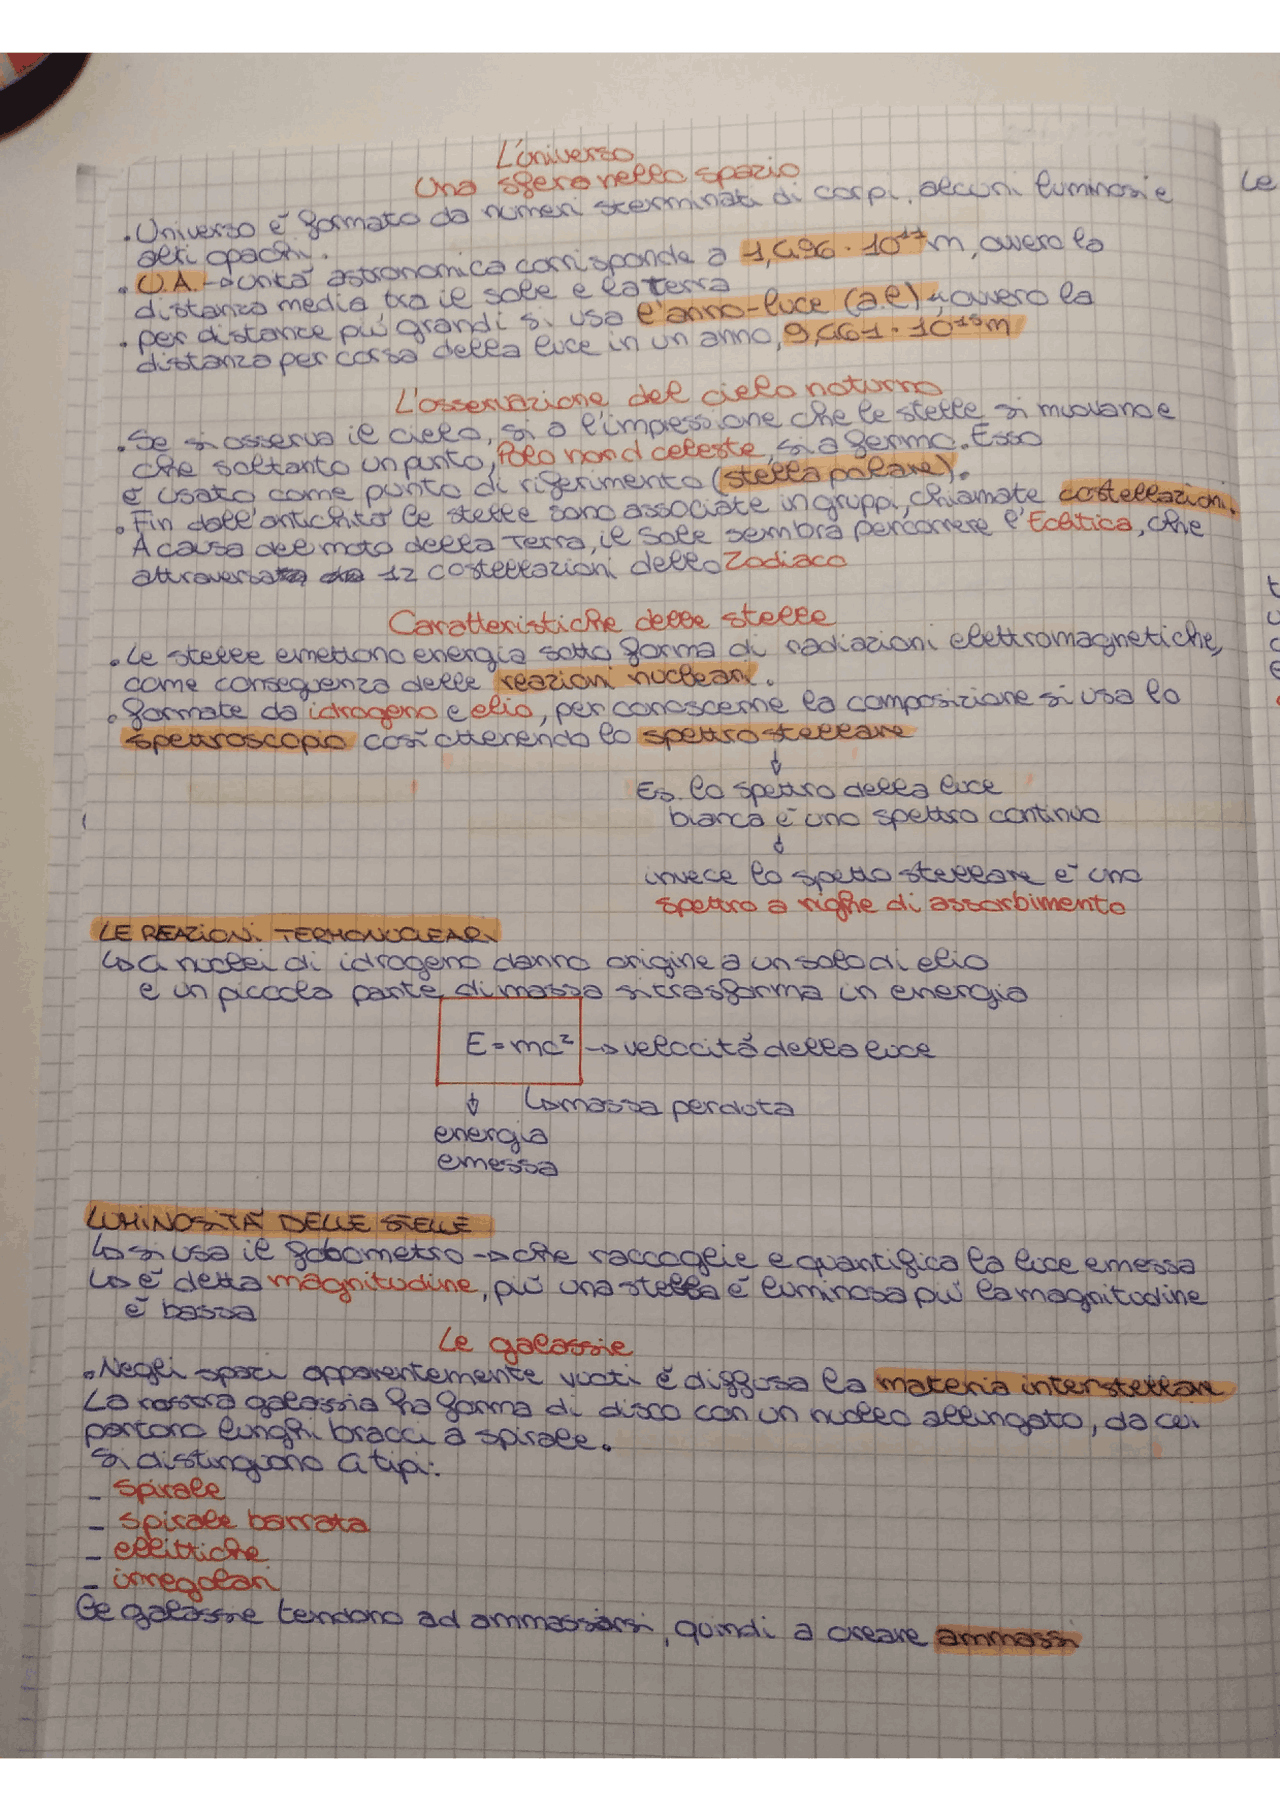 L'universo
Una sfera nello spazio
Le
• Universo è formato da numeri sterminati di corpi, alcuni luminosi e
altri opachi.
• U.A. → unità astronomica corrisponde a 1,496 · 10¹¹ m, ovvero la
distanza media tra il sole e la terra
• per distanze più grandi si usa l'anno-luce (a.l), ovvero la
distanza percorsa della luce in un anno, 9,461 · 10¹⁵ m
L'osservazione del cielo noturno
• Se si osserva il cielo, si a l'impressione che le stelle si muovano e
che soltanto un punto, Polo nord celeste, sia fermo. Esso
è usato come punto di riferimento (stella polare).
• Fin dall'antichità le stelle sono associate in gruppi, chiamate costellazioni.
A causa del moto della Terra, il Sole sembra percorrere l'Eclitica, che
attraversa 12 costellazioni dello Zodiaco
Caratteristiche delle stelle
• Le stelle emettono energia sotto forma di radiazioni elettromagnetiche,
come conseguenza delle reazioni nucleari.
• formate da idrogeno e elio, per conoscerne la composizione si usa lo
spettroscopio così ottenendo lo spettro stellare
↓
Es. lo spettro della luce
bianca è uno spettro continuo
↓
invece lo spetto stellare è uno
spettro a righe di assorbimento
LE REAZIONI TERMONUCLEARI
↳ 4 nuclei di idrogeno danno origine a un solo di elio
e un piccola parte di massa si trasforma in energia
E = mc² → velocità della luce
↓ ↳ massa perduta
energia
emessa
LUMINOSITÀ DELLE STELLE
↳ si usa il fotometro → che raccoglie e quantifica la luce emessa
↳ è detta magnitudine, più una stella è luminosa più la magnitudine
è bassa
Le galassie
• Negli spazi apparentemente vuoti è diffusa la materia interstellare
La nostra galassia ha forma di disco con un nucleo allungato, da cui
partono lunghi bracci a spirale.
Si distinguono 4 tipi:
- spirale
- spirale barrata
- ellittiche
- irregolari
Le galassie tendono ad ammassarsi, quindi a creare ammassi